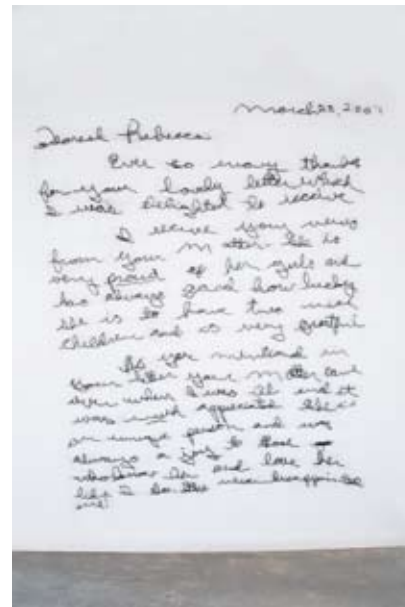 March 20, 200
Dearest Rebecca
Ever so many thanks
for your lovely letter which
I was delighted to receive
I receive your news
from your mother She is
very proud of her girls and
has always said how lucky
she is to have two nice
children and is very grateful
As you mentioned in
your letter your mother came
over when I was ill and it
was much appreciated She is
an unique person and was
always a joy to those
who know her and love her
like I do. She never disappoints
me!